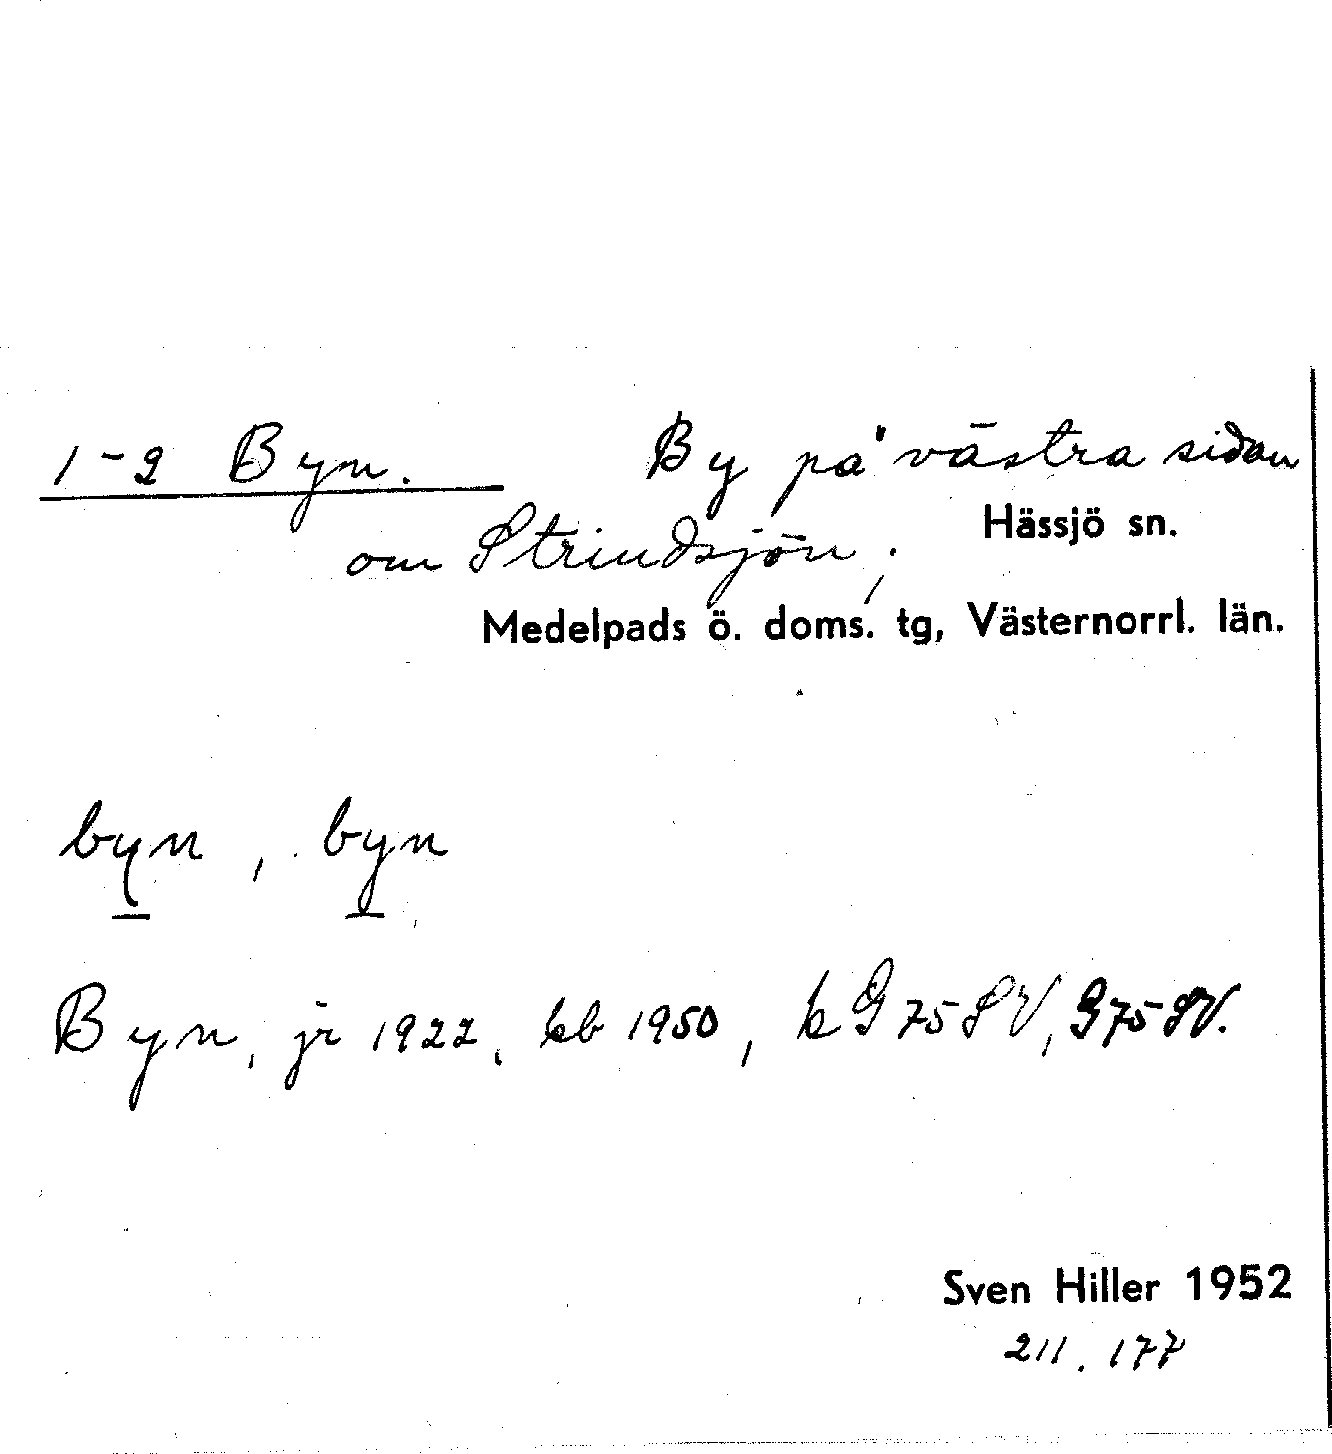 1-2 Byn. By på västra sidan
Hässjö sn.
om Strindsjön,
Medelpads ö. doms. tg, Västernorrl. län.
byn, byn
Byn, jr 1922, kb 1950, k G 75 SV, G 75 SV.
Sven Hiller 1952
211. 177